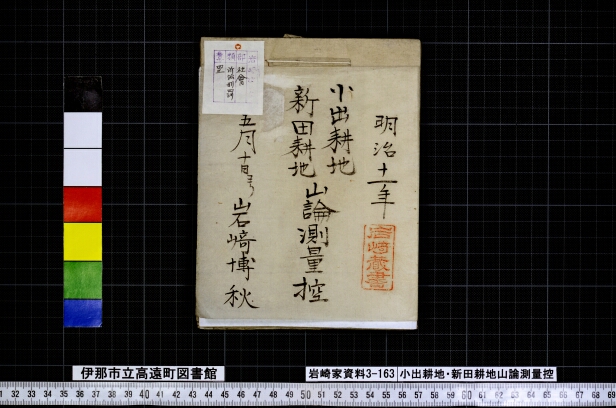 明治十一年
小出耕地
新田耕地
山論測量控
五月十日ヨリ
岩﨑博秋
岩﨑蔵書
社會
伊那市立高遠町図書館
岩崎家資料3-163 小出耕地・新田耕地山論測量控
32 33 34 35 36 37 38 39 40 41 42 43 44 45 46 47 48 49 50 51 52 53 54 55 56 57 58 59 60 61 62 63 64 65 66 67 68